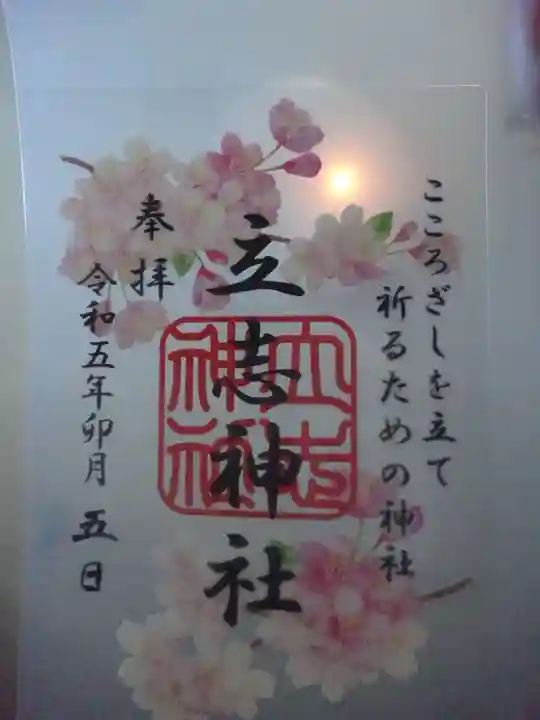 こころざしを立て
祈るための神社
立志神社
立志神社
奉拝
令和五年卯月五日